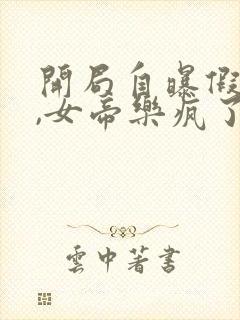 開局自曝假
,女帝樂瘋了
雲中著書